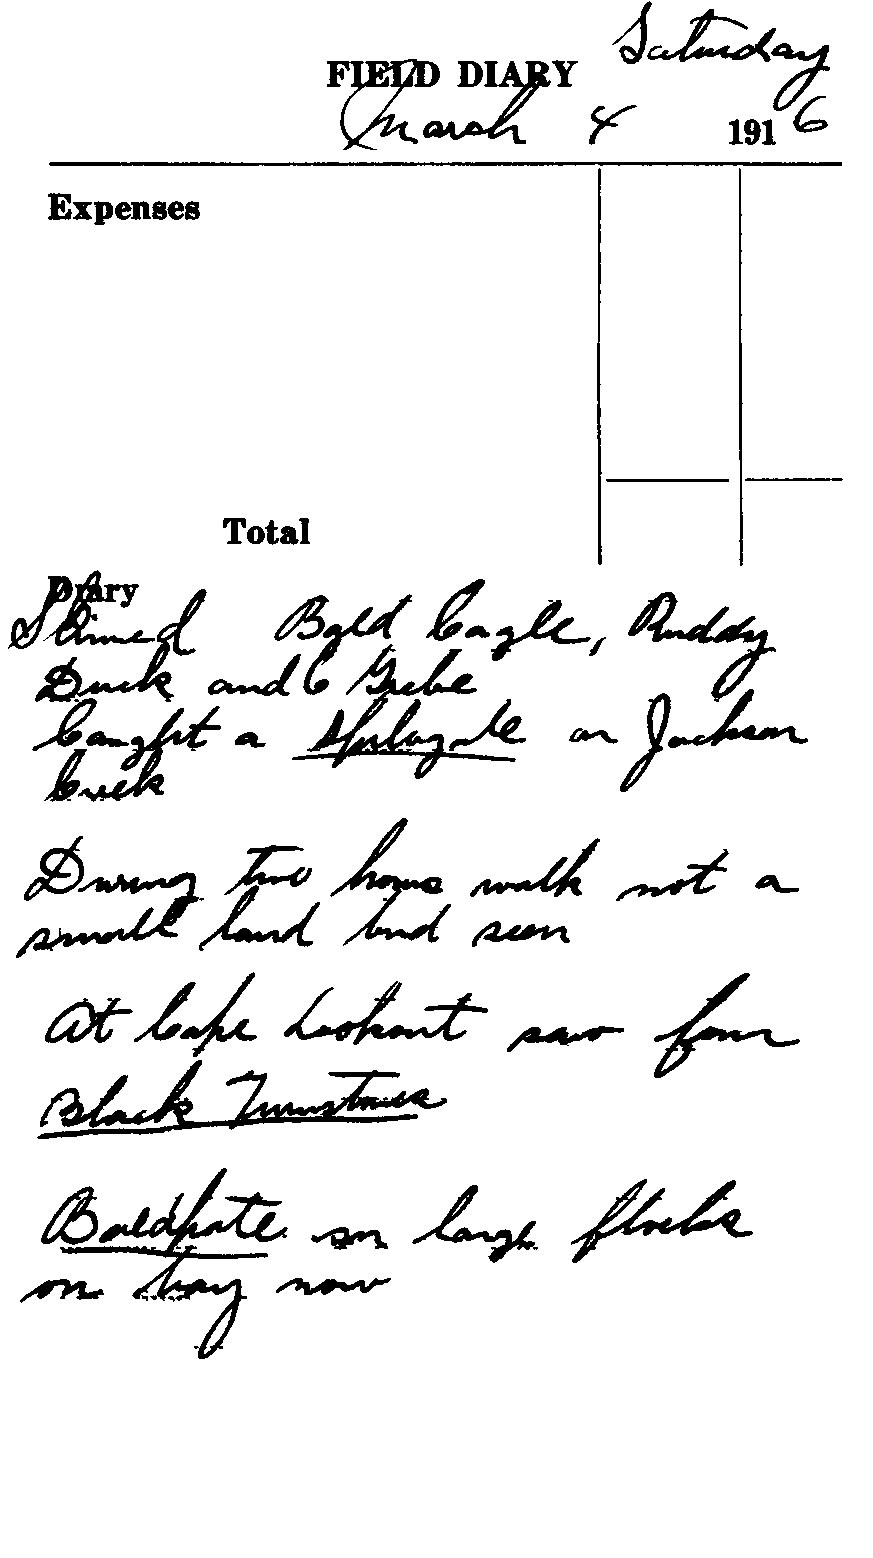 Saturday
FIELD DIARY
March 4 1916
Expenses
Total
Diary
Skinned Bald Eagle, Ruddy
Duck and 6 Grebe
Caught a Spilogale on Jackson
Creek
During two hours walk not a
small land bird seen
At Cape Lookout saw four
Black Turnstones
Baldpate in large flocks
on bay now